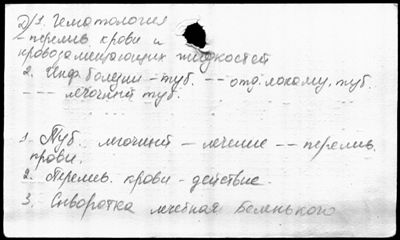 2/1. Гематология
- перелив крови и
кровозамещающих жидкостей
2. Инф. болезни - туб. -- отд. локому, туб.
--- легочный туб.
1. Туб. легочный - лечение -- перелив.
крови.
2. Перелив. крови - действие.
3. Сыворотка лечебная Беленького